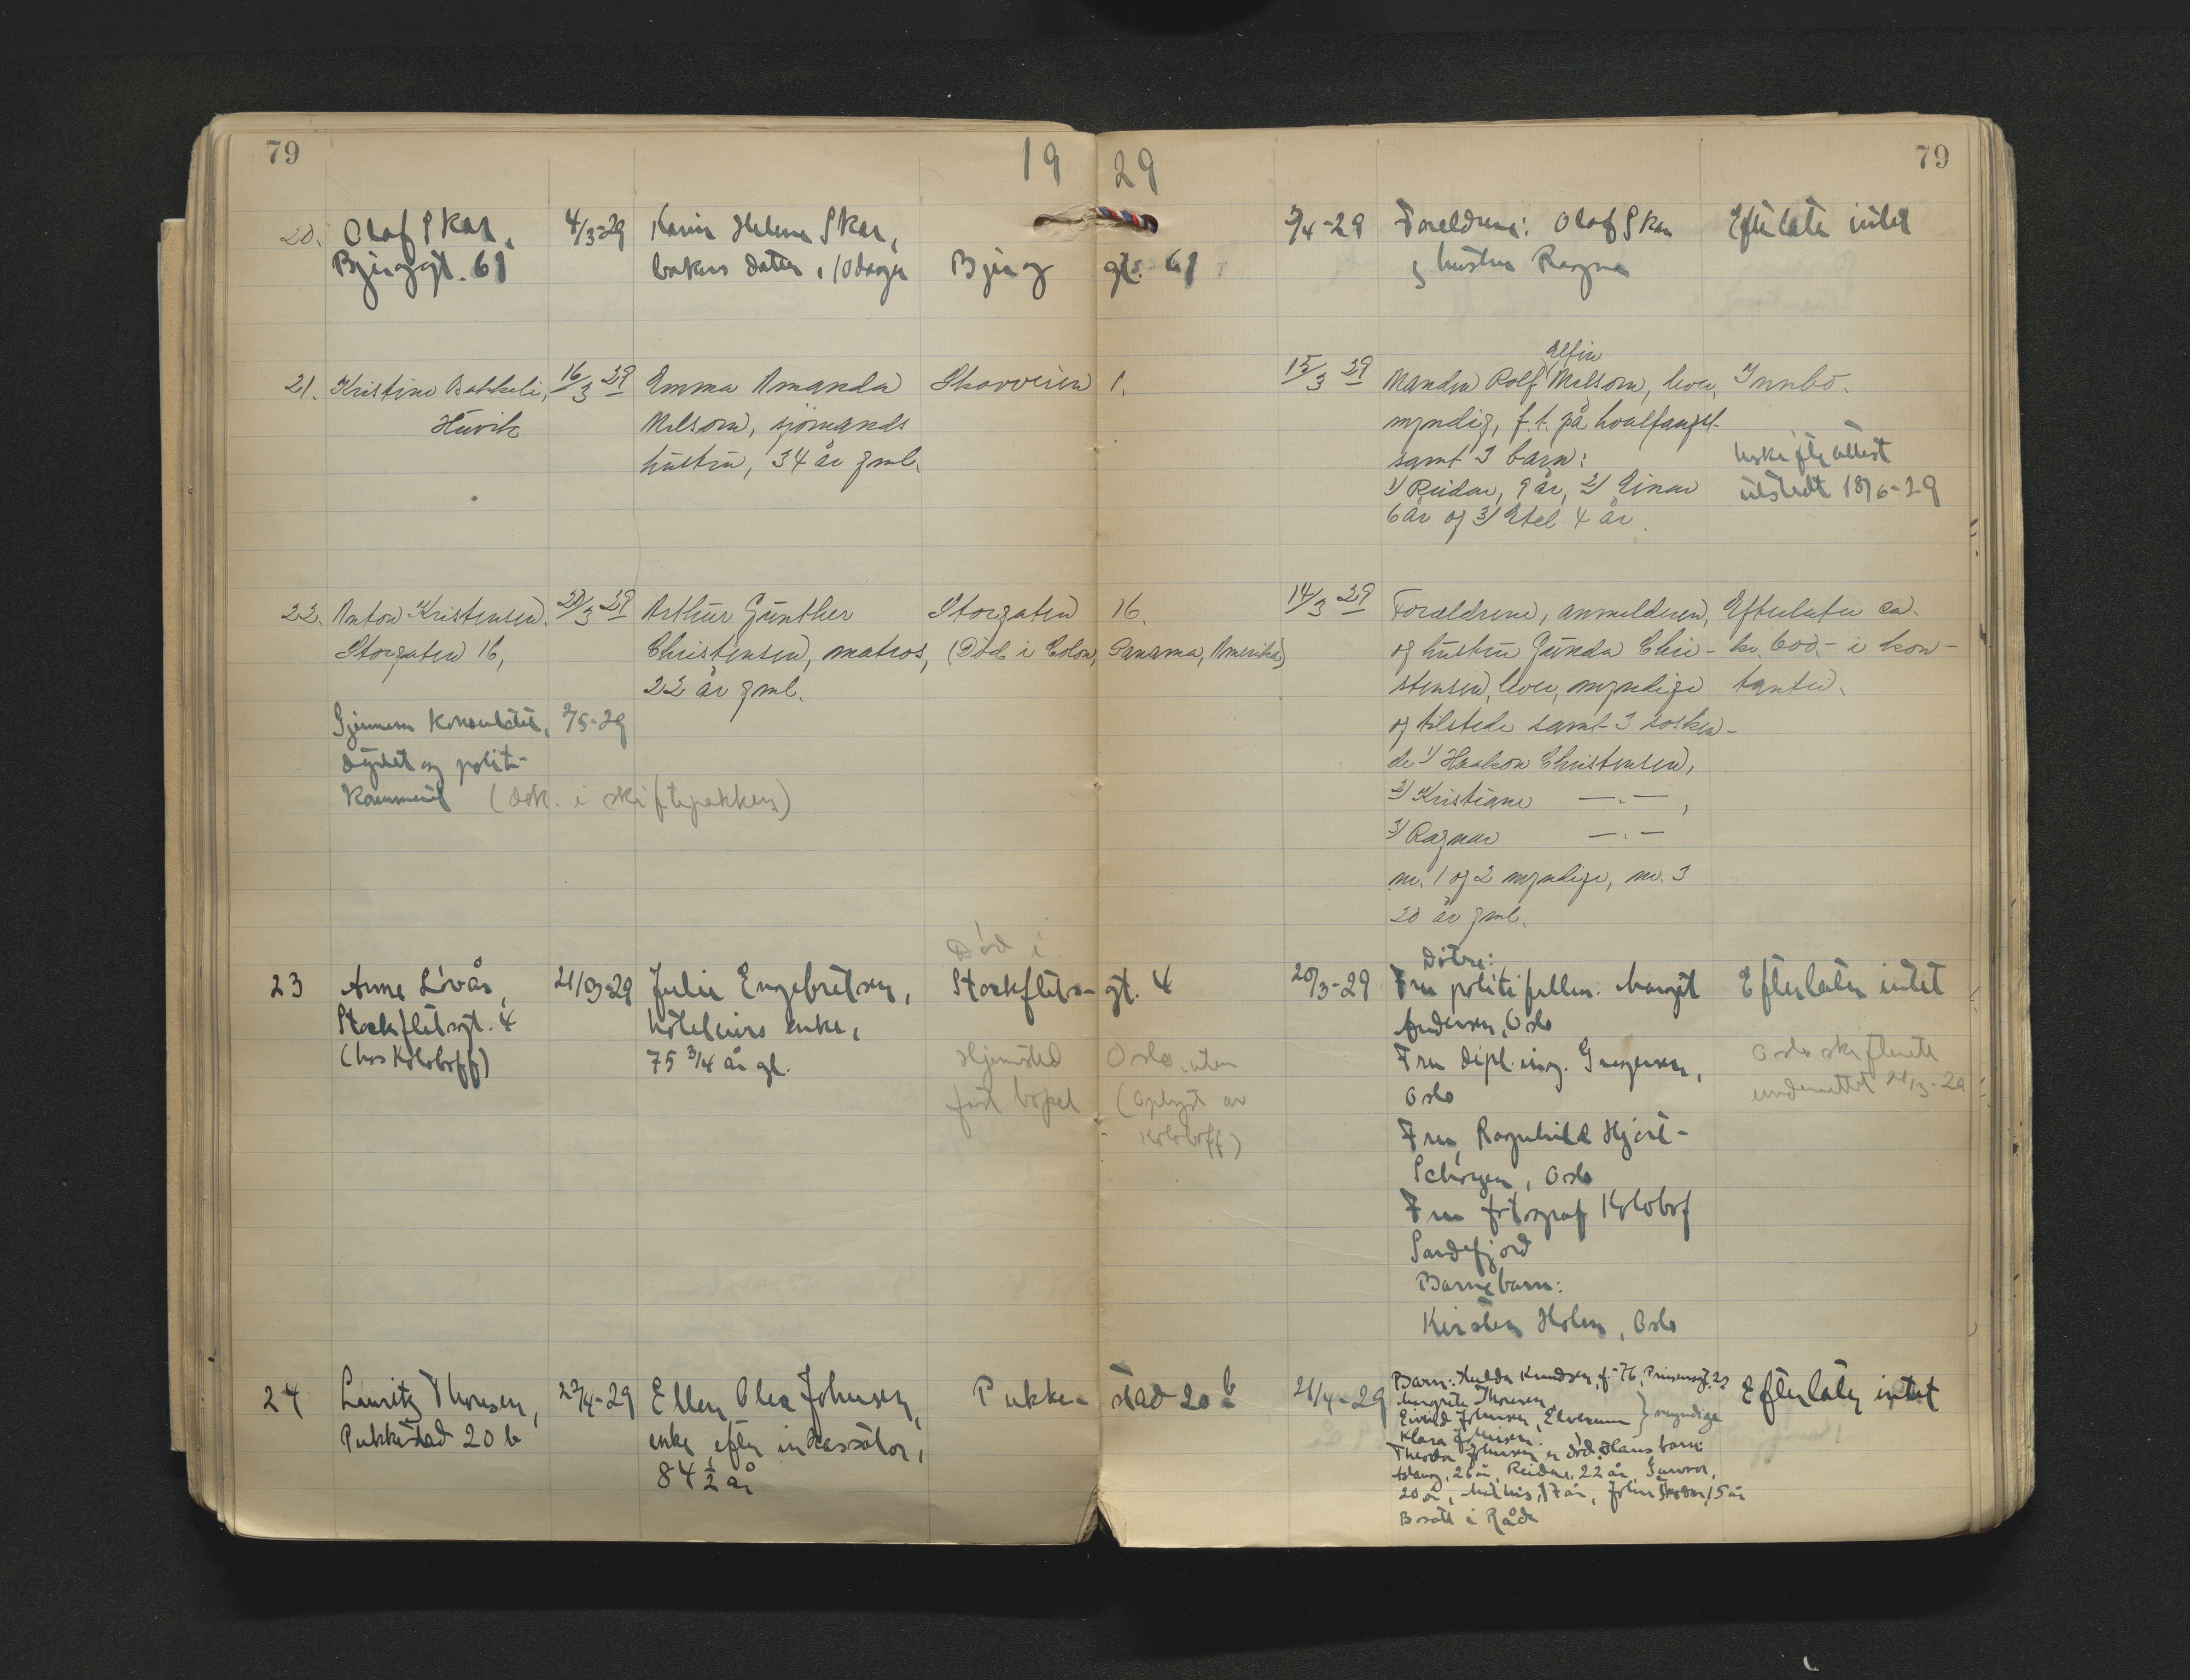 79
19 29
79
20. Olaf Skar, 4/3-29 Karin Helene Skar, 3/4-29 Foreldrene: Olaf Skar Efterlate intet
Bjerggt. 61 bakers datter, 10 dager Bjerg gt. 61 og hustru Ragna
Elfin
21. Kristine Bakkeli, 16/3 29 Emma Amanda Skarveien 1. 15/3 29 Manden Rolf Melsom, lever, Innbo.
Huvik Melsom, sjømands myndig, f.t. på hvalfangst
hustru, 34 år gml. samt 3 barn: uskifteattest
1) Reidar, 9 år, 2) Einar utstedt 18/6-29
6 år og 3) Etel 4 år.
22. Anton Kristensen, 20/3 29 Arthur Günther Storgaten 16. 14/3 29 Forældrene, anmelderen, Efterlater ca.
Storgaten 16, Christensen, matros, (Død i Colon, Panama, Amerika) og hustru Gunda Chri- kr. 600,- i kon-
22 år gml. stensen, lever, myndige tanter.
Gjennem Konsulatet, 2/5-29 og tilstede samt 3 søsken-
dødet og politi- de 1) Haakon Christensen,
kammeret (dok. i skiftepakken) 2) Kristiane —.—,
3) Ragnar —.—
nr. 1 og 2 myndige, nr. 3
20 år gml.
Død i Døtre:
23 Anne Løvås, 21/3-29 Julie Engebretsen, Stockflets- gt. 4 20/3-29 Fru politifullm. Margit Efterlater intet
Stockfletsgt. 4 hoteleiers enke, Andersen, Oslo
(hos Koloboff) 75 3/4 år gl. Hjemsted Oslo, uten Fru dipl. ing. Gregersen, Oslo skifterett
fast bopel (Oplyst av Oslo underrettet 21/3-29
Koloboff) Fru Ragnhild Hjort-
Schøyen, Oslo
Fru fotograf Kolobof
Sandefjord
Barnebarn:
Kirsten Holm, Oslo
24 Lauritz Thoresen, 22/4-29 Ellen Olea Johnsen, Pukke- stad 20 b 21/4-29 Barn: Hulda Knudsen, f. 76, Prinsensgt. 23 Efterlater intet
Pukkestad 20 b enke efter inkassator, Margrete Thoresen
84 1/2 år Eivind Johnsen, Elverum } myndige
Klara Johnsen
Theodor Johnsen er død. Hans barn:
Aslaug, 26 år, Reidar, 22 år, Gunvor,
20 år, Mathis, 17 år, John 15 år
Bosatt i Råde